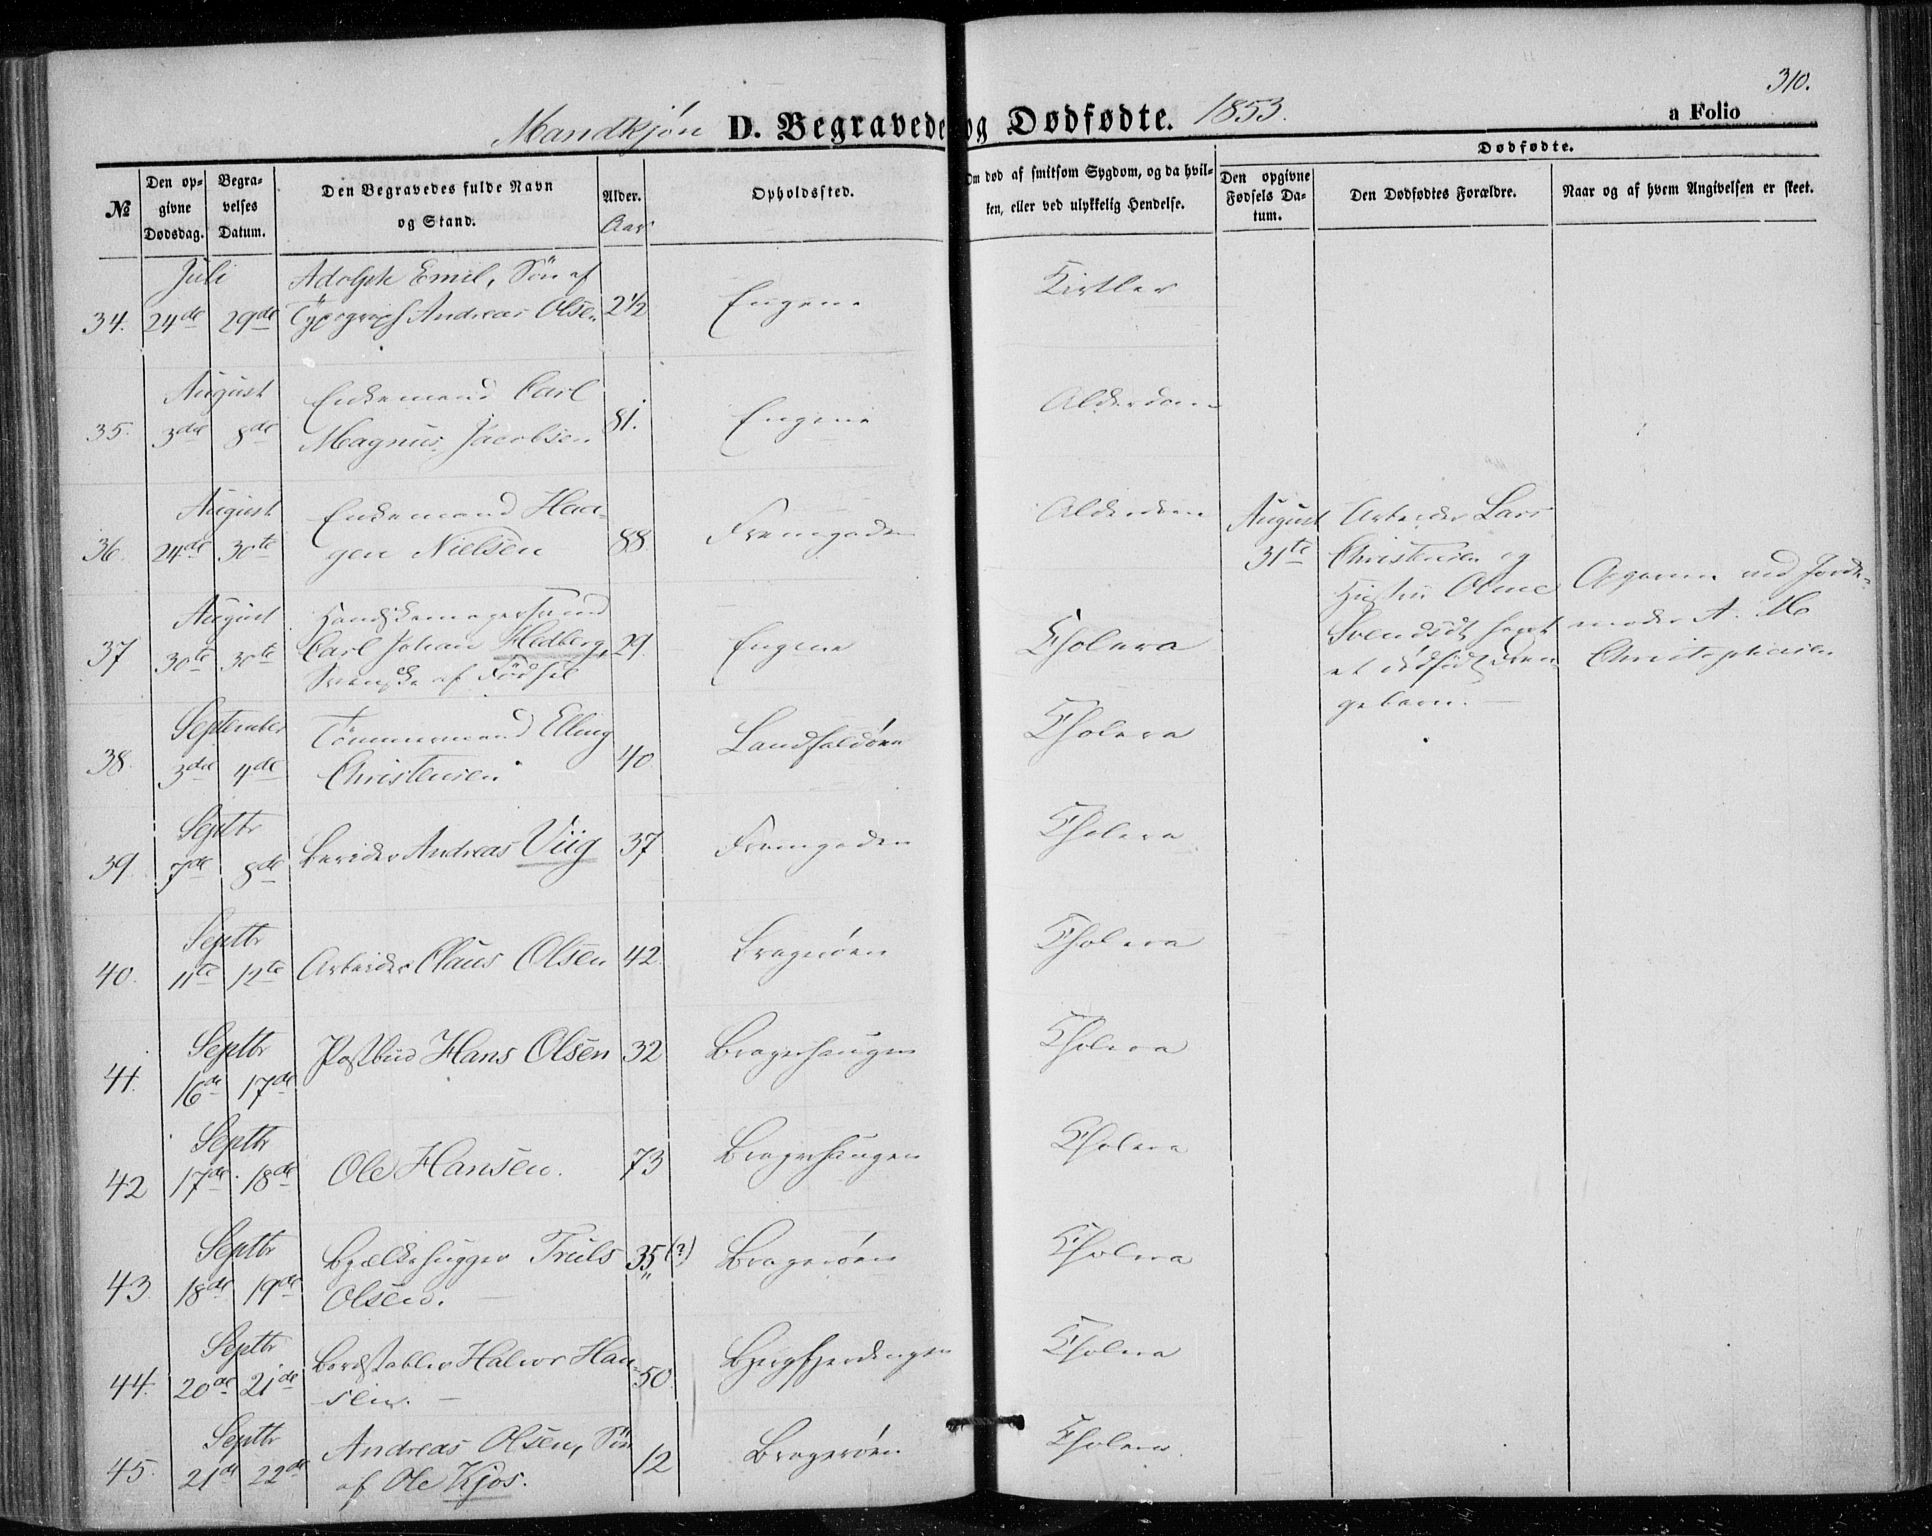 310.
Mandkjøn D. Begravede og Dødfødte. 1853. a Folio
No
Den op-
givne
Dødsdag.
Begra-
velses
Datum.
Den Begravedes fulde Navn
og Stand.
Alder.
Aar
Opholdssted.
Om død af smitsom Sygdom, og da hvil-
ken, eller ved ulykkelig Hendelse.
Dødfødte.
Den opgivne
Fødsels Da-
tum.
Den Dødfødtes Forældre.
Naar og af hvem Angivelsen er skeet.
Juli Adolph Emil, Søn af
34. 24de 29de Typograph Andreas Olsen 2½ Engene Kirtler
August Enkemand Carl
35. 3die 8de Magnus Jacobsen 81. Engene Alderdom
August Enkemand Haa-
36. 24de 30te gen Nielsen 88 Fremgaden Alderdom
August Handskemagersvend
37 30te 30te Carl Johan Hedberg, 29 Engene Cholera
Svenske af Fødsel
August
31te
Arbeider Lars
Christensen og
Hustru
Svendsdt
et dødfødt Dren
gebarn. —
Opgivne ved Jorde-
moder A. M
Christophersen
September Tømmermand Elling
38. 3die 4de Christensen 40 Landfaldøen Cholera
Septbr
39. 7de 8de Berider Andreas Viig 37 Fremgaden Cholera
Septbr
40. 11te 12te Arbeider Claus Olsen 42 Bragerøen Cholera
Septbr
41. 16de 17de Postbud Hans Olsen 32 Bragerhaugen Cholera
Septbr
42 17de 18de Ole Hansen. 73 Bragerhaugen Cholera
Septbr Bjælkehugger Truls
43 18de 19de Olsen. — 35 (?) Bragerøen Cholera
Septbr Bordstabler Halvor Han-
44. 20de 21de sen. — 50. Bjergfjerdingen Cholera
Septbr Andreas Olsen, Søn
45. 21de 22de af Ole Kjos. 12 Bragerøen Cholera.